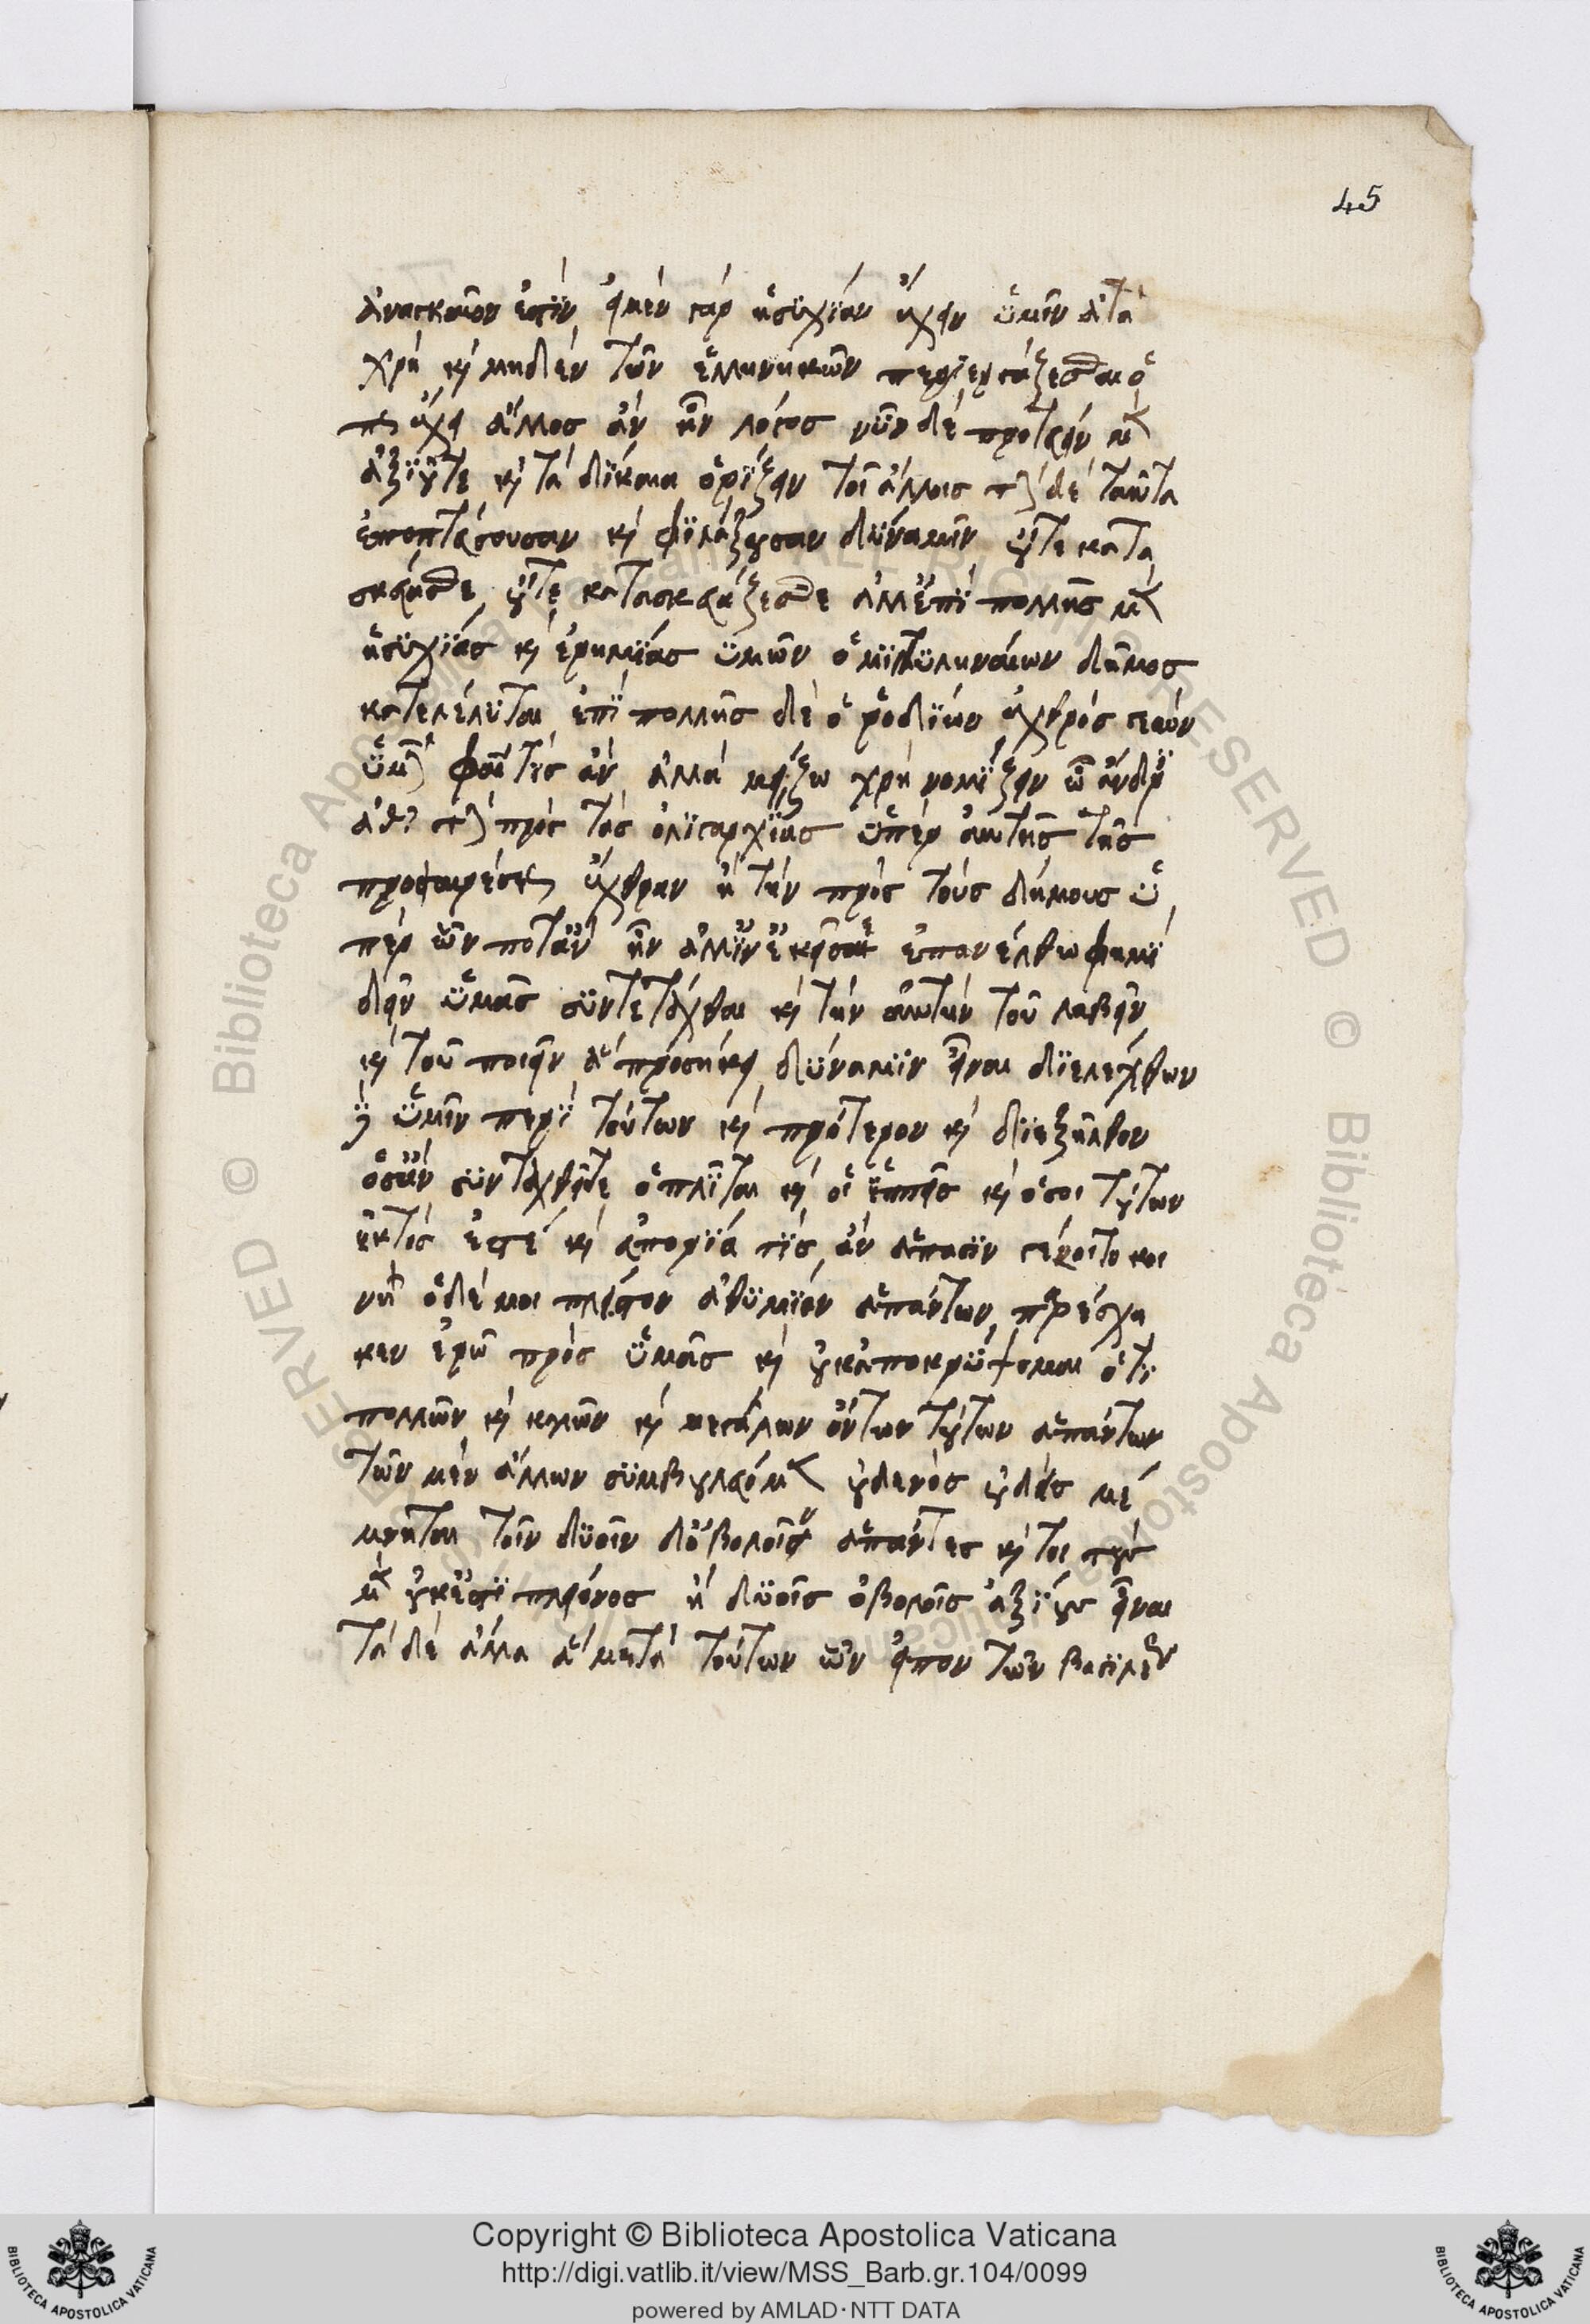 45
ἀναγκαῖον ἐστὶν εἰ μὲν γὰρ ἡσυχίαν ἔχειν ὑμῖν ἀπο
χρὴ καὶ μηδὲν τῶν ἑλληνικῶν περιεργάζεσθαι ὅ
πως ἔχει ἄλλος ἂν ἦν λόγος νῦν δὲ πρωτεύειν μὲν
ἀξιοῦτε καὶ τὰ δίκαια ὁρίζειν τοῖς ἄλλοις τὴν δὲ ταῦτα
ἐποπτεύσουσαν καὶ φυλάξουσαν δύναμιν οὔτε κατε
σκεύασθε οὔτε κατασκευάζεσθε ἀλλ' ἐπὶ πολλῆς μὲν
ἡσυχίας καὶ ἐρημίας ὑμῶν ὁ μιτυληναίων δῆμος
καταλέλυται ἐπὶ πολλῆς δὲ ὁ ῥοδίων ἐχθρός γε ὢν
ὑμῖν φαίη τις ἂν ἀλλὰ μείζω χρὴ νομίζειν ὦ ἄνδρες
ἀθηναῖοι τὴν πρὸς τὰς ὀλιγαρχίας ὑπὲρ αὐτῆς τῆς
προαιρέσεως ἔχθραν ἢ τὴν πρὸς τοὺς δήμους ὑ
πὲρ ὧν ποτ' ἂν ἦν ἀλλ' ἵν' ἐκεῖσε ἐπανέλθω φημὶ
δεῖν ὑμᾶς συντετάχθαι καὶ τὴν αὐτὴν τοῦ λαβεῖν
καὶ τοῦ ποιεῖν ἃ προσήκει δύναμιν εἶναι διελέχθην
δ' ὑμῖν περὶ τούτων καὶ πρότερον καὶ διεξῆλθον
ὡς ἂν συνταχθείητε ὁπλῖται καὶ οἱ ἱππεῖς καὶ ὅσοι τούτων
ἐκτός ἐστε καὶ εὐπορία τις ἂν ἅπασιν γένοιτο κοι
νὴ ὃ δέ μοι πλείστην ἀθυμίαν ἁπάντων παρέσχη
κεν ἐρῶ πρὸς ὑμᾶς καὶ οὐκ ἀποκρύψομαι ὅτι
πολλῶν καὶ καλῶν καὶ μεγάλων ὄντων τούτων ἁπάντων
τῶν μὲν ἄλλων συμβουλευομεν οὐδενὸς οὐδεὶς μέ
μνηται τοῖν δυοῖν δ' ὀβολοῖν ἅπαντες καὶ τοι τοὺς
μὲν οὐκ ἔστι πλείονος ἢ δυοῖς ὀβολοῖς ἀξίους εἶναι
τὰ δὲ ἄλλα ἃ μετὰ τούτων ὧν εἶπον τῶν βασιλέων
Copyright © Biblioteca Apostolica Vaticana
http://digi.vatlib.it/view/MSS_Barb.gr.104/0099
powered by AMLAD·NTT DATA